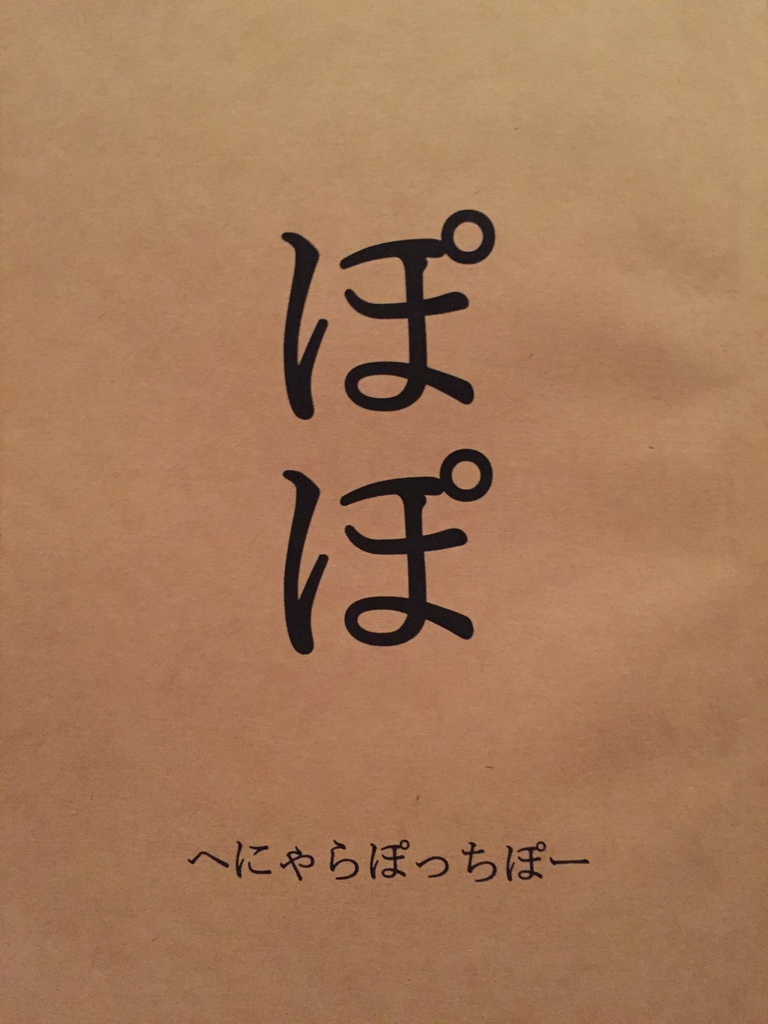 ぽぽ
へにゃらぽっちぽー